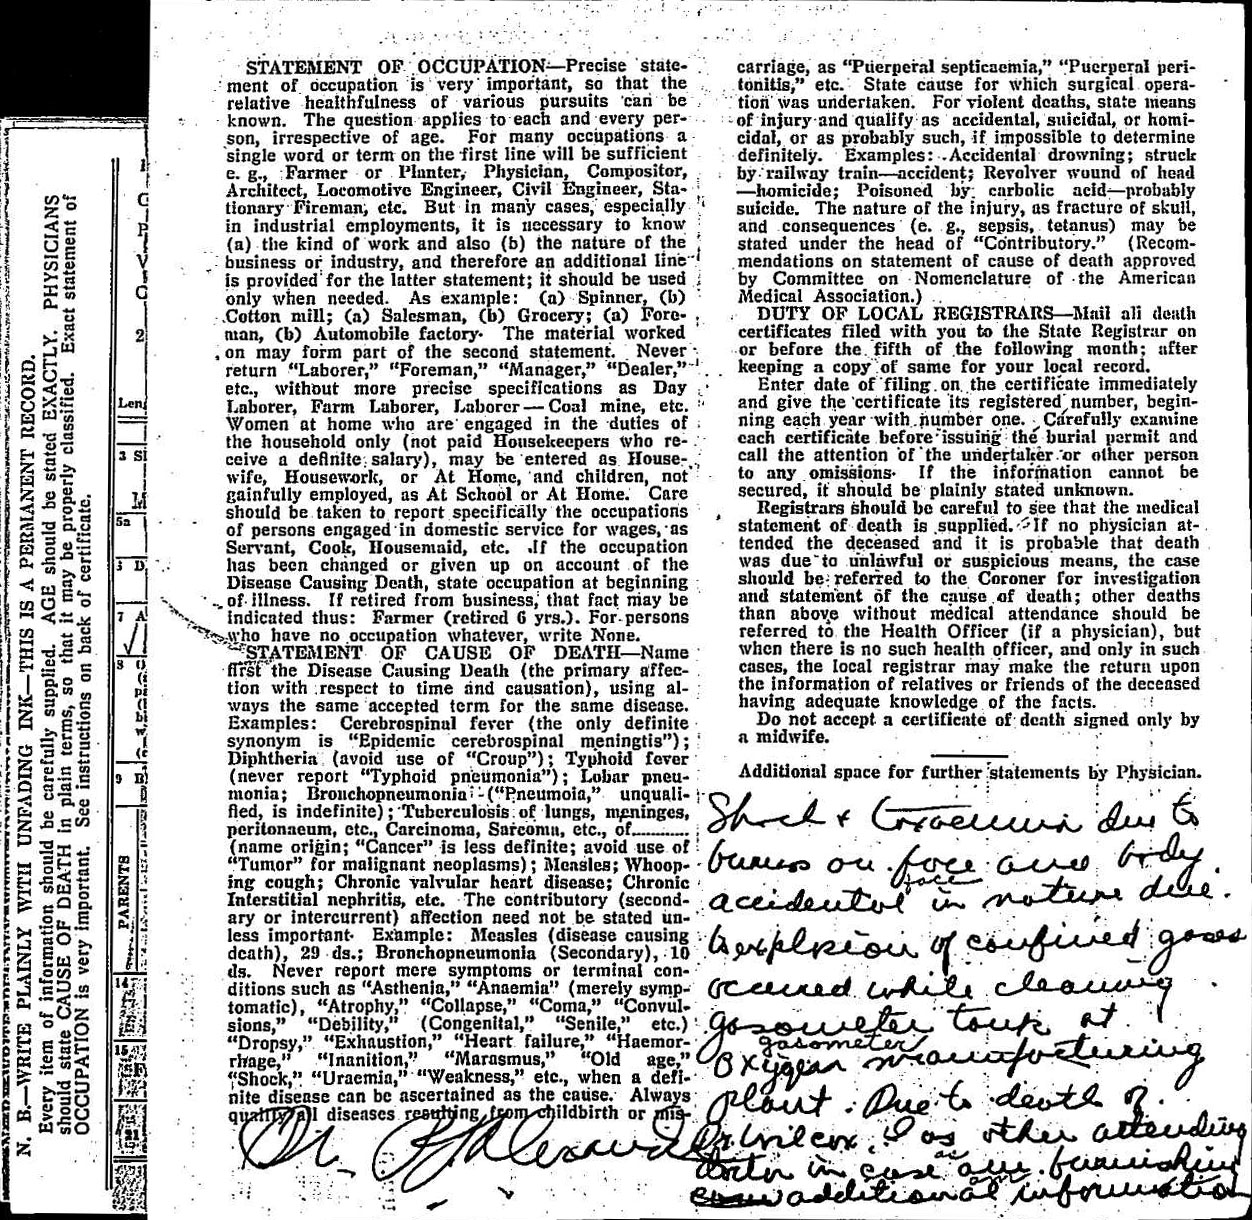 N. B.—WRITE PLAINLY WITH UNFADING INK—THIS IS A PERMANENT RECORD.
Every item of information should be carefully supplied. AGE should be stated EXACTLY. PHYSICIANS
should state CAUSE OF DEATH in plain terms, so that it may be properly classified. Exact statement of
OCCUPATION is very important. See instructions on back of certificate.
2
Len
3 SI
5a
7 A
8
9
PARENTS
14
15
STATEMENT OF OCCUPATION—Precise state-
ment of occupation is very important, so that the
relative healthfulness of various pursuits can be
known. The question applies to each and every per-
son, irrespective of age. For many occupations a
single word or term on the first line will be sufficient
e. g., Farmer or Planter, Physician, Compositor,
Architect, Locomotive Engineer, Civil Engineer, Sta-
tionary Fireman, etc. But in many cases, especially
in industrial employments, it is necessary to know
(a) the kind of work and also (b) the nature of the
business or industry, and therefore an additional line
is provided for the latter statement; it should be used
only when needed. As example: (a) Spinner, (b)
Cotton mill; (a) Salesman, (b) Grocery; (a) Fore-
man, (b) Automobile factory. The material worked
on may form part of the second statement. Never
return "Laborer," "Foreman," "Manager," "Dealer,"
etc., without more precise specifications as Day
Laborer, Farm Laborer, Laborer—Coal mine, etc.
Women at home who are engaged in the duties of
the household only (not paid Housekeepers who re-
ceive a definite salary), may be entered as House-
wife, Housework, or At Home, and children, not
gainfully employed, as At School or At Home. Care
should be taken to report specifically the occupations
of persons engaged in domestic service for wages, as
Servant, Cook, Housemaid, etc. If the occupation
has been changed or given up on account of the
Disease Causing Death, state occupation at beginning
of illness. If retired from business, that fact may be
indicated thus: Farmer (retired 6 yrs.). For persons
who have no occupation whatever, write None.
STATEMENT OF CAUSE OF DEATH—Name
first the Disease Causing Death (the primary affec-
tion with respect to time and causation), using al-
ways the same accepted term for the same disease.
Examples: Cerebrospinal fever (the only definite
synonym is "Epidemic cerebrospinal meningtis");
Diphtheria (avoid use of "Croup"); Typhoid fever
(never report "Typhoid pneumonia"); Lobar pneu-
monia; Bronchopneumonia ("Pneumoia," unquali-
fied, is indefinite); Tuberculosis of lungs, meninges,
peritonaeum, etc., Carcinoma, Sarcoma, etc., of..........
(name origin; "Cancer" is less definite; avoid use of
"Tumor" for malignant neoplasms); Measles; Whoop-
ing cough; Chronic valvular heart disease; Chronic
Interstitial nephritis, etc. The contributory (second-
ary or intercurrent) affection need not be stated un-
less important. Example: Measles (disease causing
death), 29 ds.; Bronchopneumonia (Secondary), 10
ds. Never report mere symptoms or terminal con-
ditions such as "Asthenia," "Anaemia" (merely symp-
tomatic), "Atrophy," "Collapse," "Coma," "Convul-
sions," "Debility," (Congenital," "Senile," etc.)
"Dropsy," "Exhaustion," "Heart failure," "Haemor-
rhage," "Inanition," "Marasmus," "Old age,"
"Shock," "Uraemia," "Weakness," etc., when a defi-
nite disease can be ascertained as the cause. Always
qualify all diseases resulting from childbirth or mis-
carriage, as "Puerperal septicaemia," "Puerperal peri-
tonitis," etc. State cause for which surgical opera-
tion was undertaken. For violent deaths, state means
of injury and qualify as accidental, suicidal, or homi-
cidal, or as probably such, if impossible to determine
definitely. Examples: Accidental drowning; struck
by railway train—accident; Revolver wound of head
—homicide; Poisoned by carbolic acid—probably
suicide. The nature of the injury, as fracture of skull,
and consequences (e. g., sepsis, tetanus) may be
stated under the head of "Contributory." (Recom-
mendations on statement of cause of death approved
by Committee on Nomenclature of the American
Medical Association.)
DUTY OF LOCAL REGISTRARS—Mail all death
certificates filed with you to the State Registrar on
or before the fifth of the following month; after
keeping a copy of same for your local record.
Enter date of filing on the certificate immediately
and give the certificate its registered number, begin-
ning each year with number one. Carefully examine
each certificate before issuing the burial permit and
call the attention of the undertaker or other person
to any omissions. If the information cannot be
secured, it should be plainly stated unknown.
Registrars should be careful to see that the medical
statement of death is supplied. If no physician at-
tended the deceased and it is probable that death
was due to unlawful or suspicious means, the case
should be referred to the Coroner for investigation
and statement of the cause of death; other deaths
than above without medical attendance should be
referred to the Health Officer (if a physician), but
when there is no such health officer, and only in such
cases, the local registrar may make the return upon
the information of relatives or friends of the deceased
having adequate knowledge of the facts.
Do not accept a certificate of death signed only by
a midwife.
Additional space for further statements by Physician.
Shock & toxaemia due to
burns on face and body.
face
accidental in nature due
to explosion of confined gases
occured while cleaning
gasometer tank at
gasometer
oxygen manufacturing
plant. Due to death of
Dr Wilcox, I as other attending
doctor in case am furnishing
additional information
Dr. Alexander